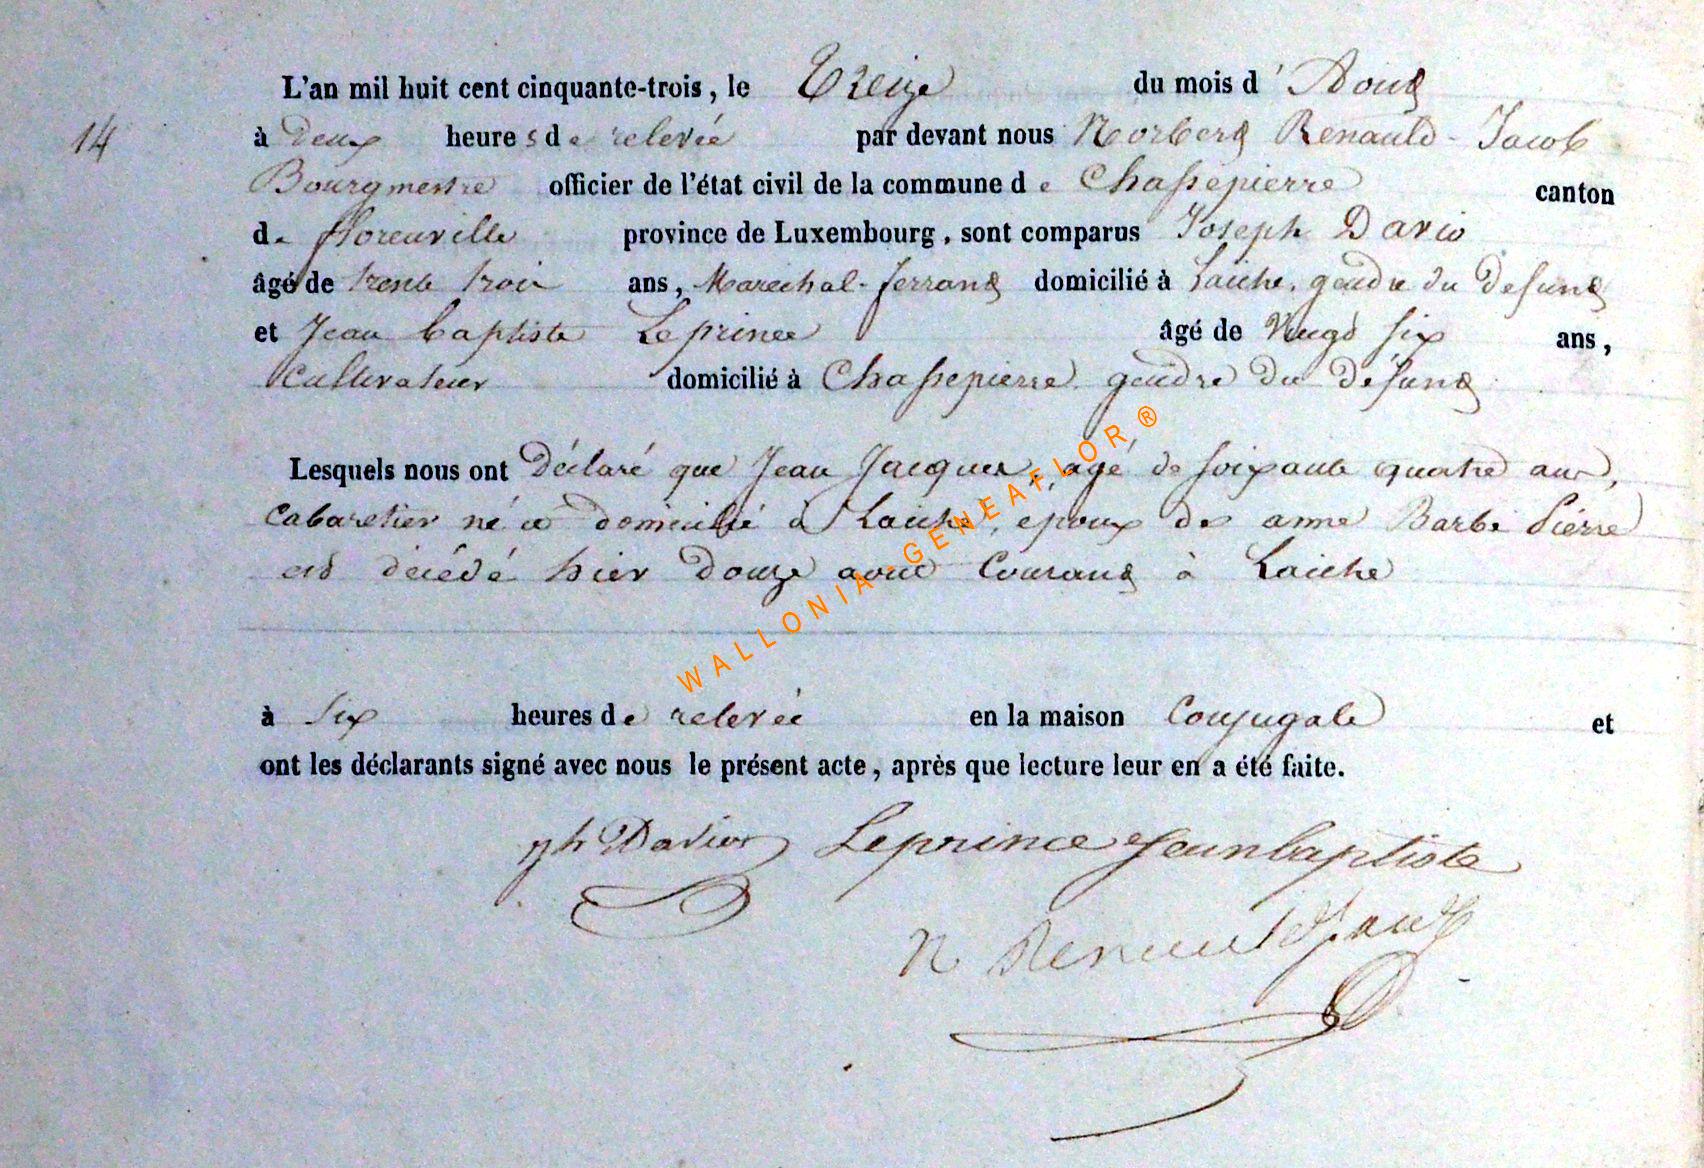 L'an mil huit cent cinquante-trois, le Treize du mois d'Aout
14
à Deux heures de relevée par devant nous Norbert Renauld-Jacob
Bourgmestre officier de l'état civil de la commune de Chassepierre canton
de florenville province de Luxembourg, sont comparus Joseph Davio
âgé de trente trois ans, Marechal-ferrant domicilié à Laiche, gendre du defunt
et Jean baptiste Leprince âgé de Vingt six ans,
Cultivateur domicilié à Chassepierre gendre du défunt
Lesquels nous ont Déclaré que Jean Jacques, agé de soixante quatre ans,
Cabaretier né et domicilié à Laiche, epoux de anne Barbe Pierre
est décédé hier douze aout Courant à Laiche
WALLONIA-GENEAFLOR ®
à Six heures de relevée en la maison Conjugale et
ont les déclarants signé avec nous le présent acte, après que lecture leur en a été faite.
jh Davio Leprince Jean baptiste
N Renauld Jacob